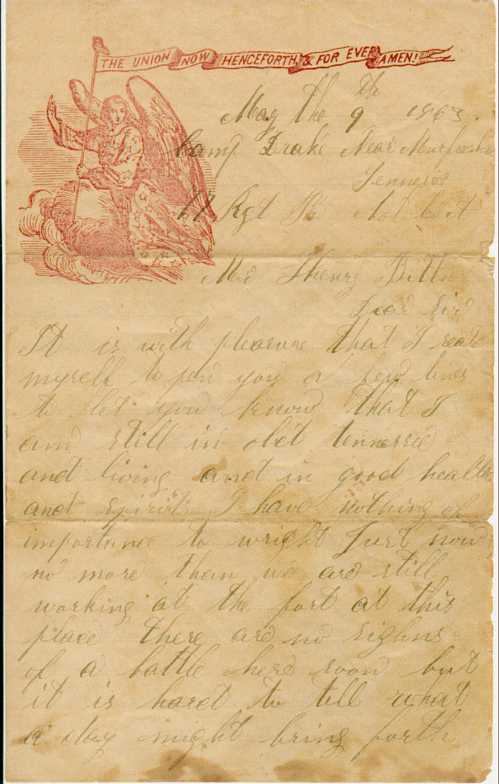 THE UNION NOW HENCEFORTH, & FOR EVER AMEN!
May the 9th 1863.
Camp Drake Near
Tennessee
Regt
Mr Henry
Dear Sir
It is with pleasure that I seat
myself to pen you a few lines
to let you know that I
am still in old tennessee
and living and in good health
and spirits I have nothing of
importance to wright Just now
no more than we are still
working at the fort at this
place there are no sighns
of a battle here soon but
it is hard to tell what
a day might bring forth